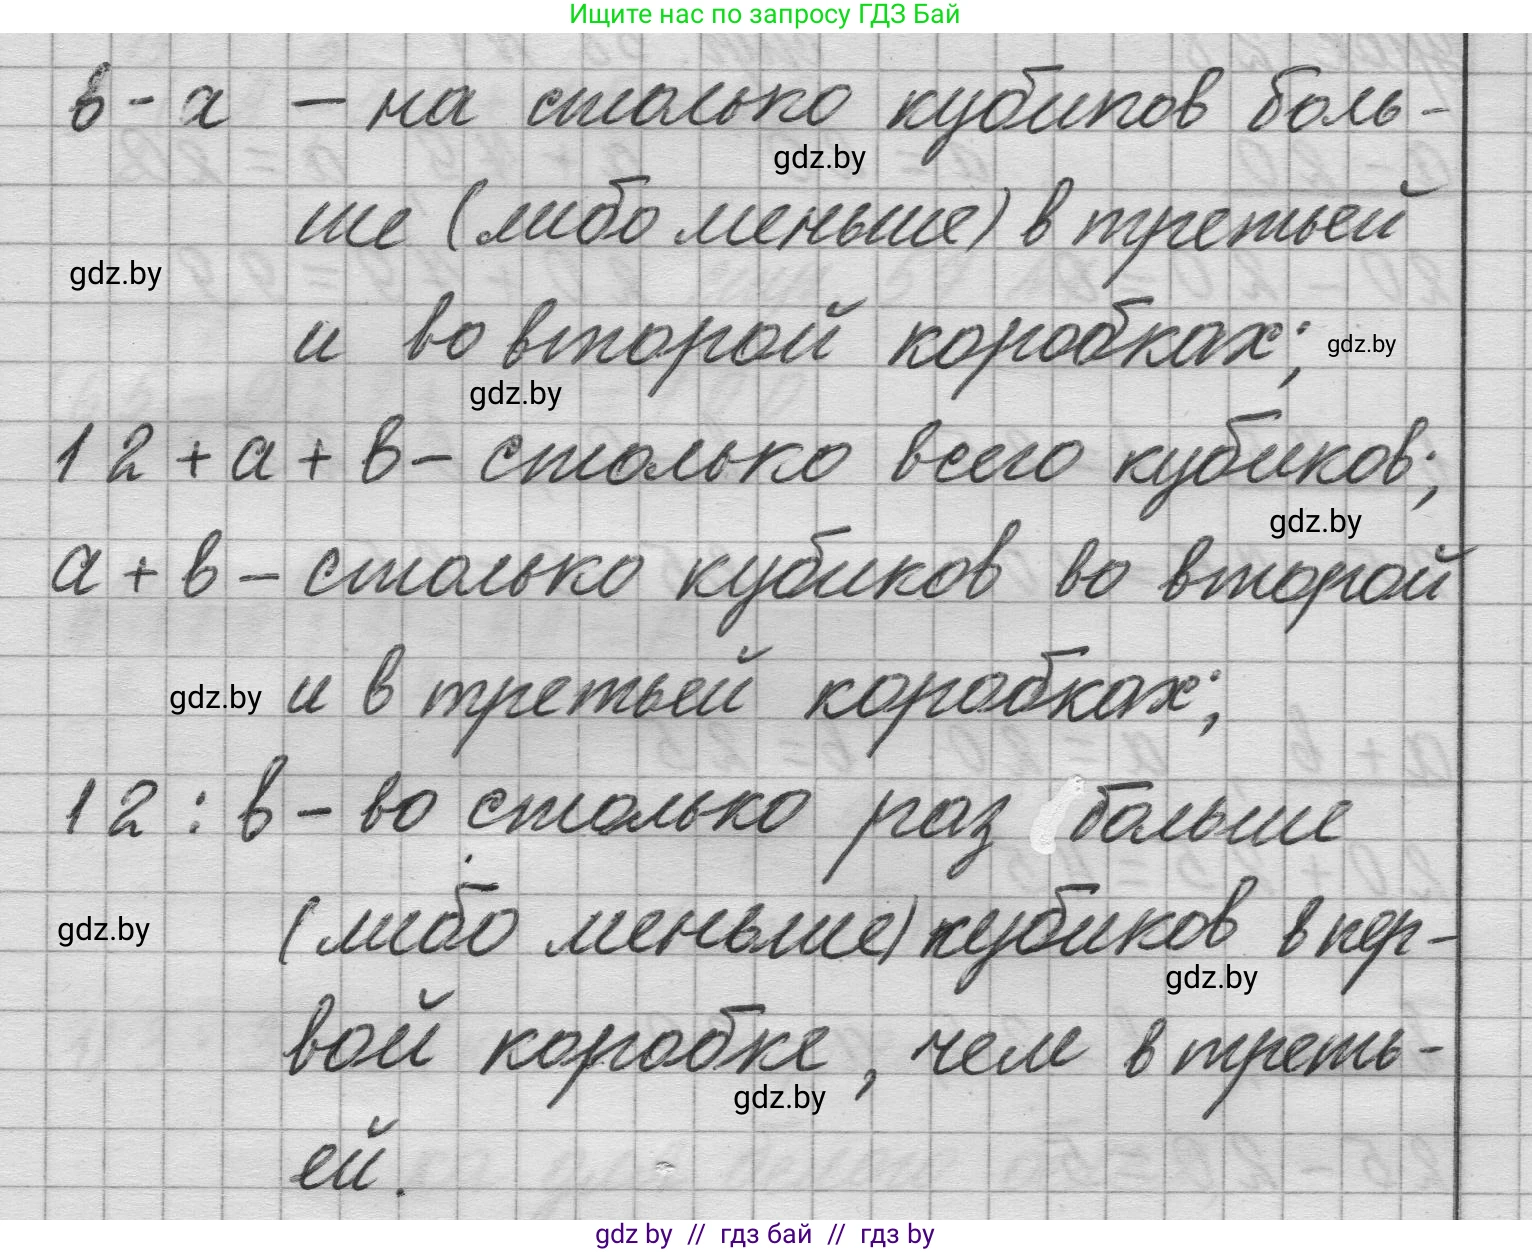 Ищите нас по запросу ГДЗ Бай
в - а — на столько кубиков боль-
gdz.by
ше (либо меньше) в третьей
gdz.by
и во второй коробках;
gdz.by
gdz.by
12 + а + в - столько всего кубиков;
gdz.by
а + в - столько кубиков во второй
gdz.by
и в третьей коробках;
12 : в - во столько раз больше
(либо меньше) кубиков в пер-
gdz.by
gdz.by
вой коробке, чем в треть-
gdz.by
ей.
gdz by // гдз бай // гдз by